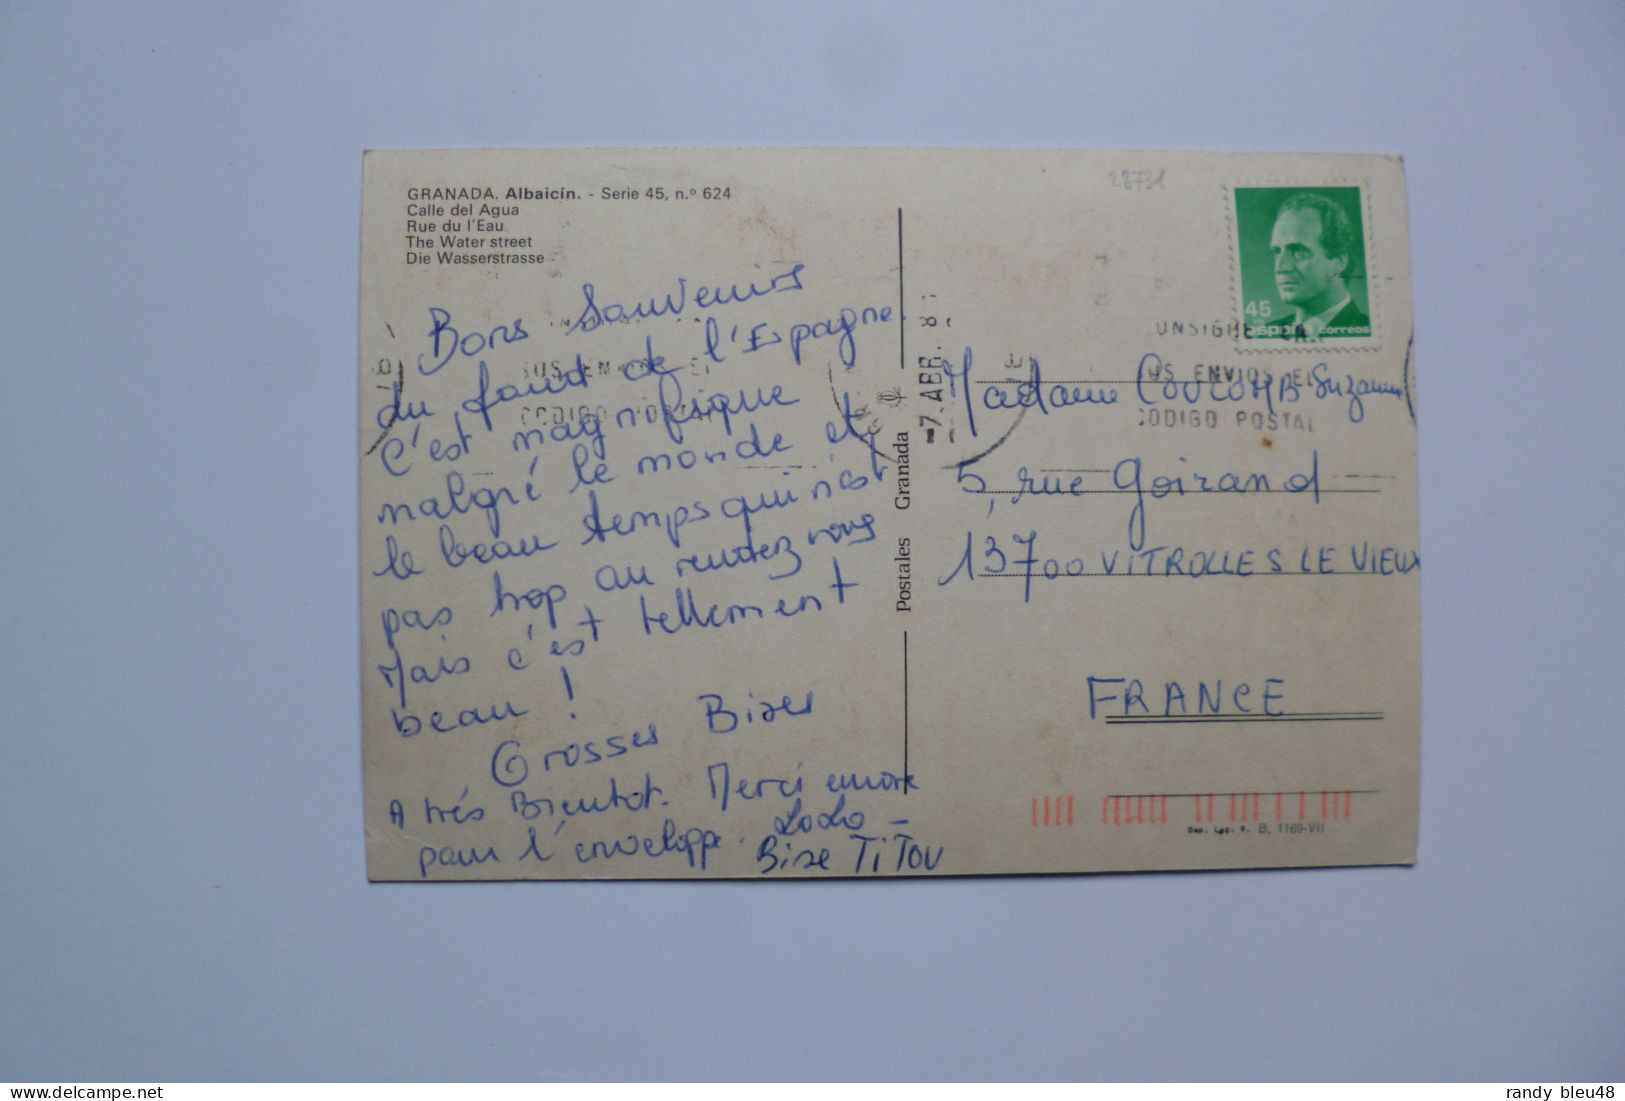 GRANADA. Albaicín. - Serie 45, n.º 624
Calle del Agua
Rue du l'Eau
The Water street
Die Wasserstrasse
Bons Souvenirs
du fond de l'Espagne
C'est magnifique
malgré le monde et
le beau temps qui n'est
pas trop au rendez vous
Mais c'est tellement
beau !
Grosses Bises
A très Bientot. Merci encore
pour l'enveloppe. LoLo -
Bise TiTou
Postales Granada
28731
45
españa correos
-7.ABR.8
ONSIGNE EN
US ENVIOS EL
CODIGO POSTAL
SUS ENVIOS EL
CODIGO POSTAL
Madame COULOMB Suzanne
5, rue Goirand
13700 VITROLLES LE VIEUX
FRANCE
Dep. Leg. B. 1169-VII
delcampe.net
randy bleu48